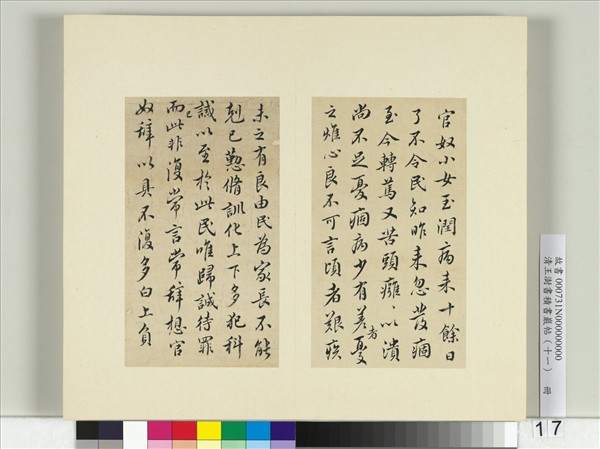 官奴小女玉潤病来十餘日
了不令民知昨来忽發痼
至今轉篤又苦頭癰〻以潰
尚不足憂痼病少有差者憂
之燋心良不可言頃者艱疾
未之有良由民為家長不能
剋己懃脩訓化上下多犯科
誡以至於此民唯歸誠待罪
而已此非復常言常辭想官
奴辭以具不復多白上負
故書000731N000000000
清王澍書積書巖帖（十一） 冊
17